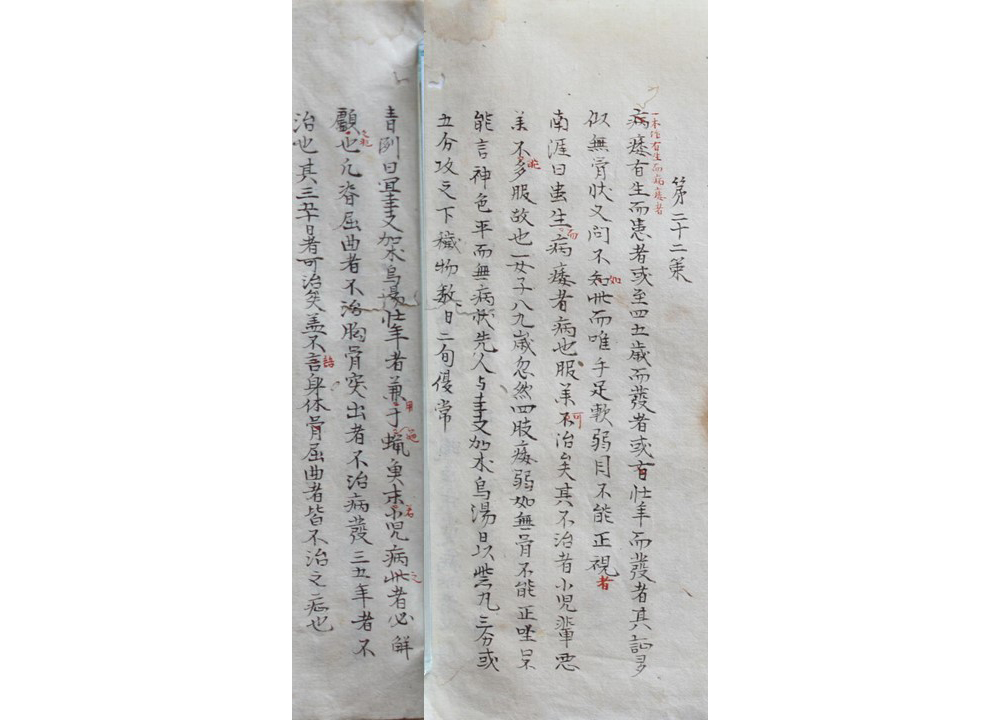 第二十二策
一本作有生而病痿者
病痿有生而患者或至四五歲而發者或有壯年而發者其証多
似無骨狀又問不知此而唯手足軟弱目不能正視者
如
南涯曰虫生病痿者病也服薬不治矣其不治者小児輩悪
而
可
薬不多服故也一女子八九歲忽然四肢痿弱如無骨不能正坐呈
能
能言神色平而無病状先人与桂支加朮烏湯日以紫丸三分或
五分攻之下穢物数日二旬復常
青洲曰宜桂支加朮烏湯壮年者兼于蝋奠末小児病此者必解
用
之
顱也凡脊屈曲者不治胸骨突出者不治病發三五年者不
治也其三五十日者可治矣盖不言身体骨屈曲者皆不治之症也